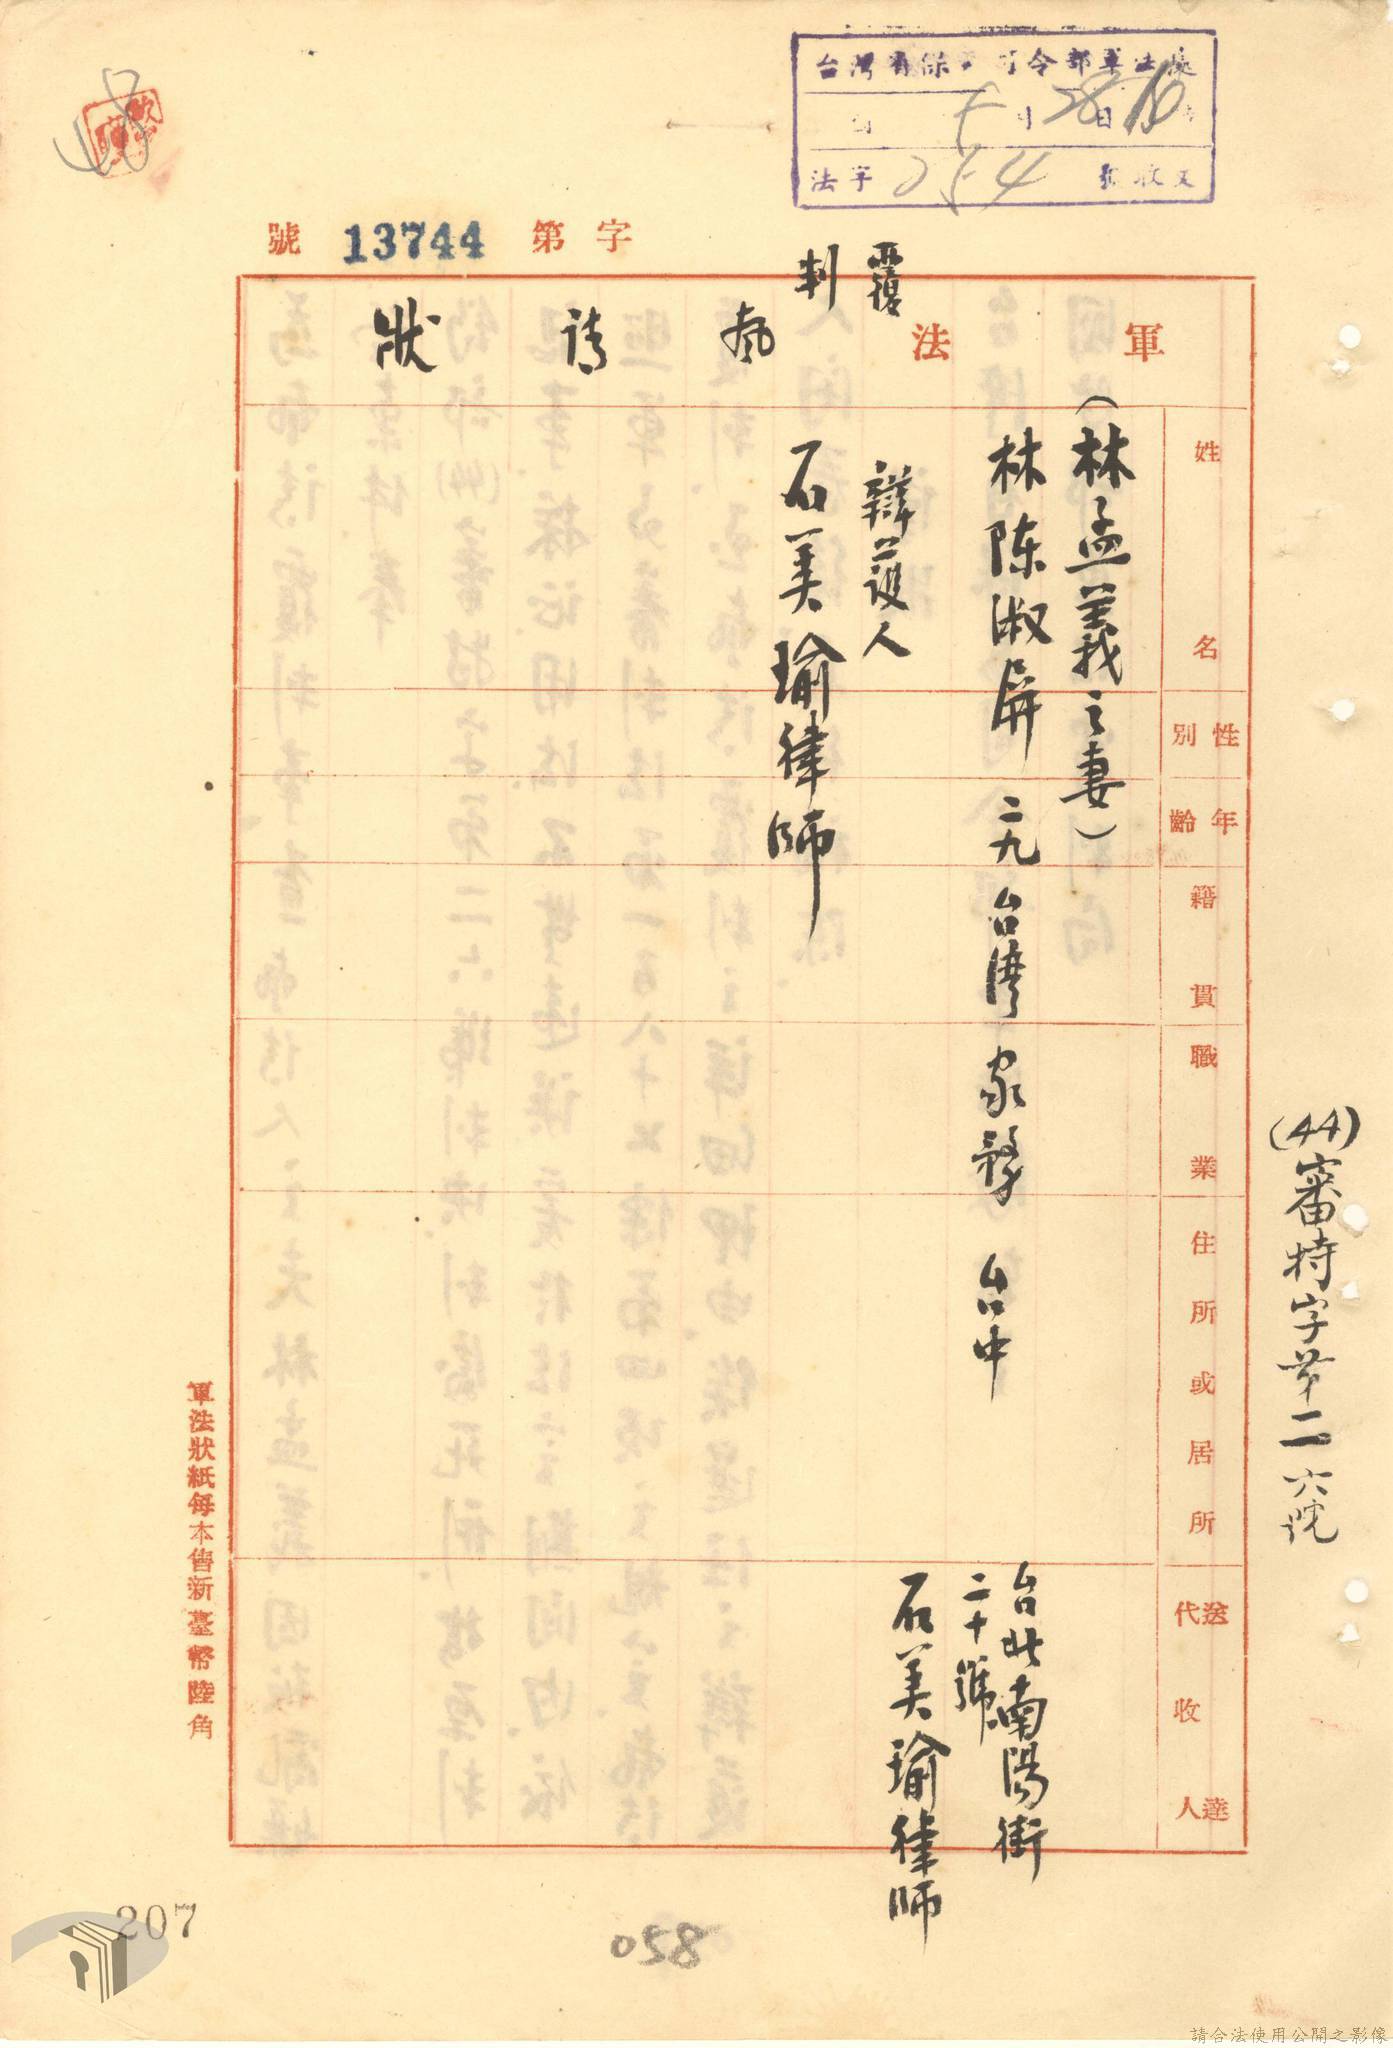 台灣省保安司令部軍法處
月28日10時
法字254號收文
字第13744號
軍法覆判聲請狀
姓名
性別
年齡
籍貫
職業
住所或居所
送達代收人
(林孟義之妻)
林陳淑屏 二九 台灣 家務 台中
台北南陽街
二十號
石美瑜律師
辯護人
石美瑜律師
(44)審特字第二六號
軍法狀紙每本售新臺幣陸角
207
058
請合法使用公開之影像